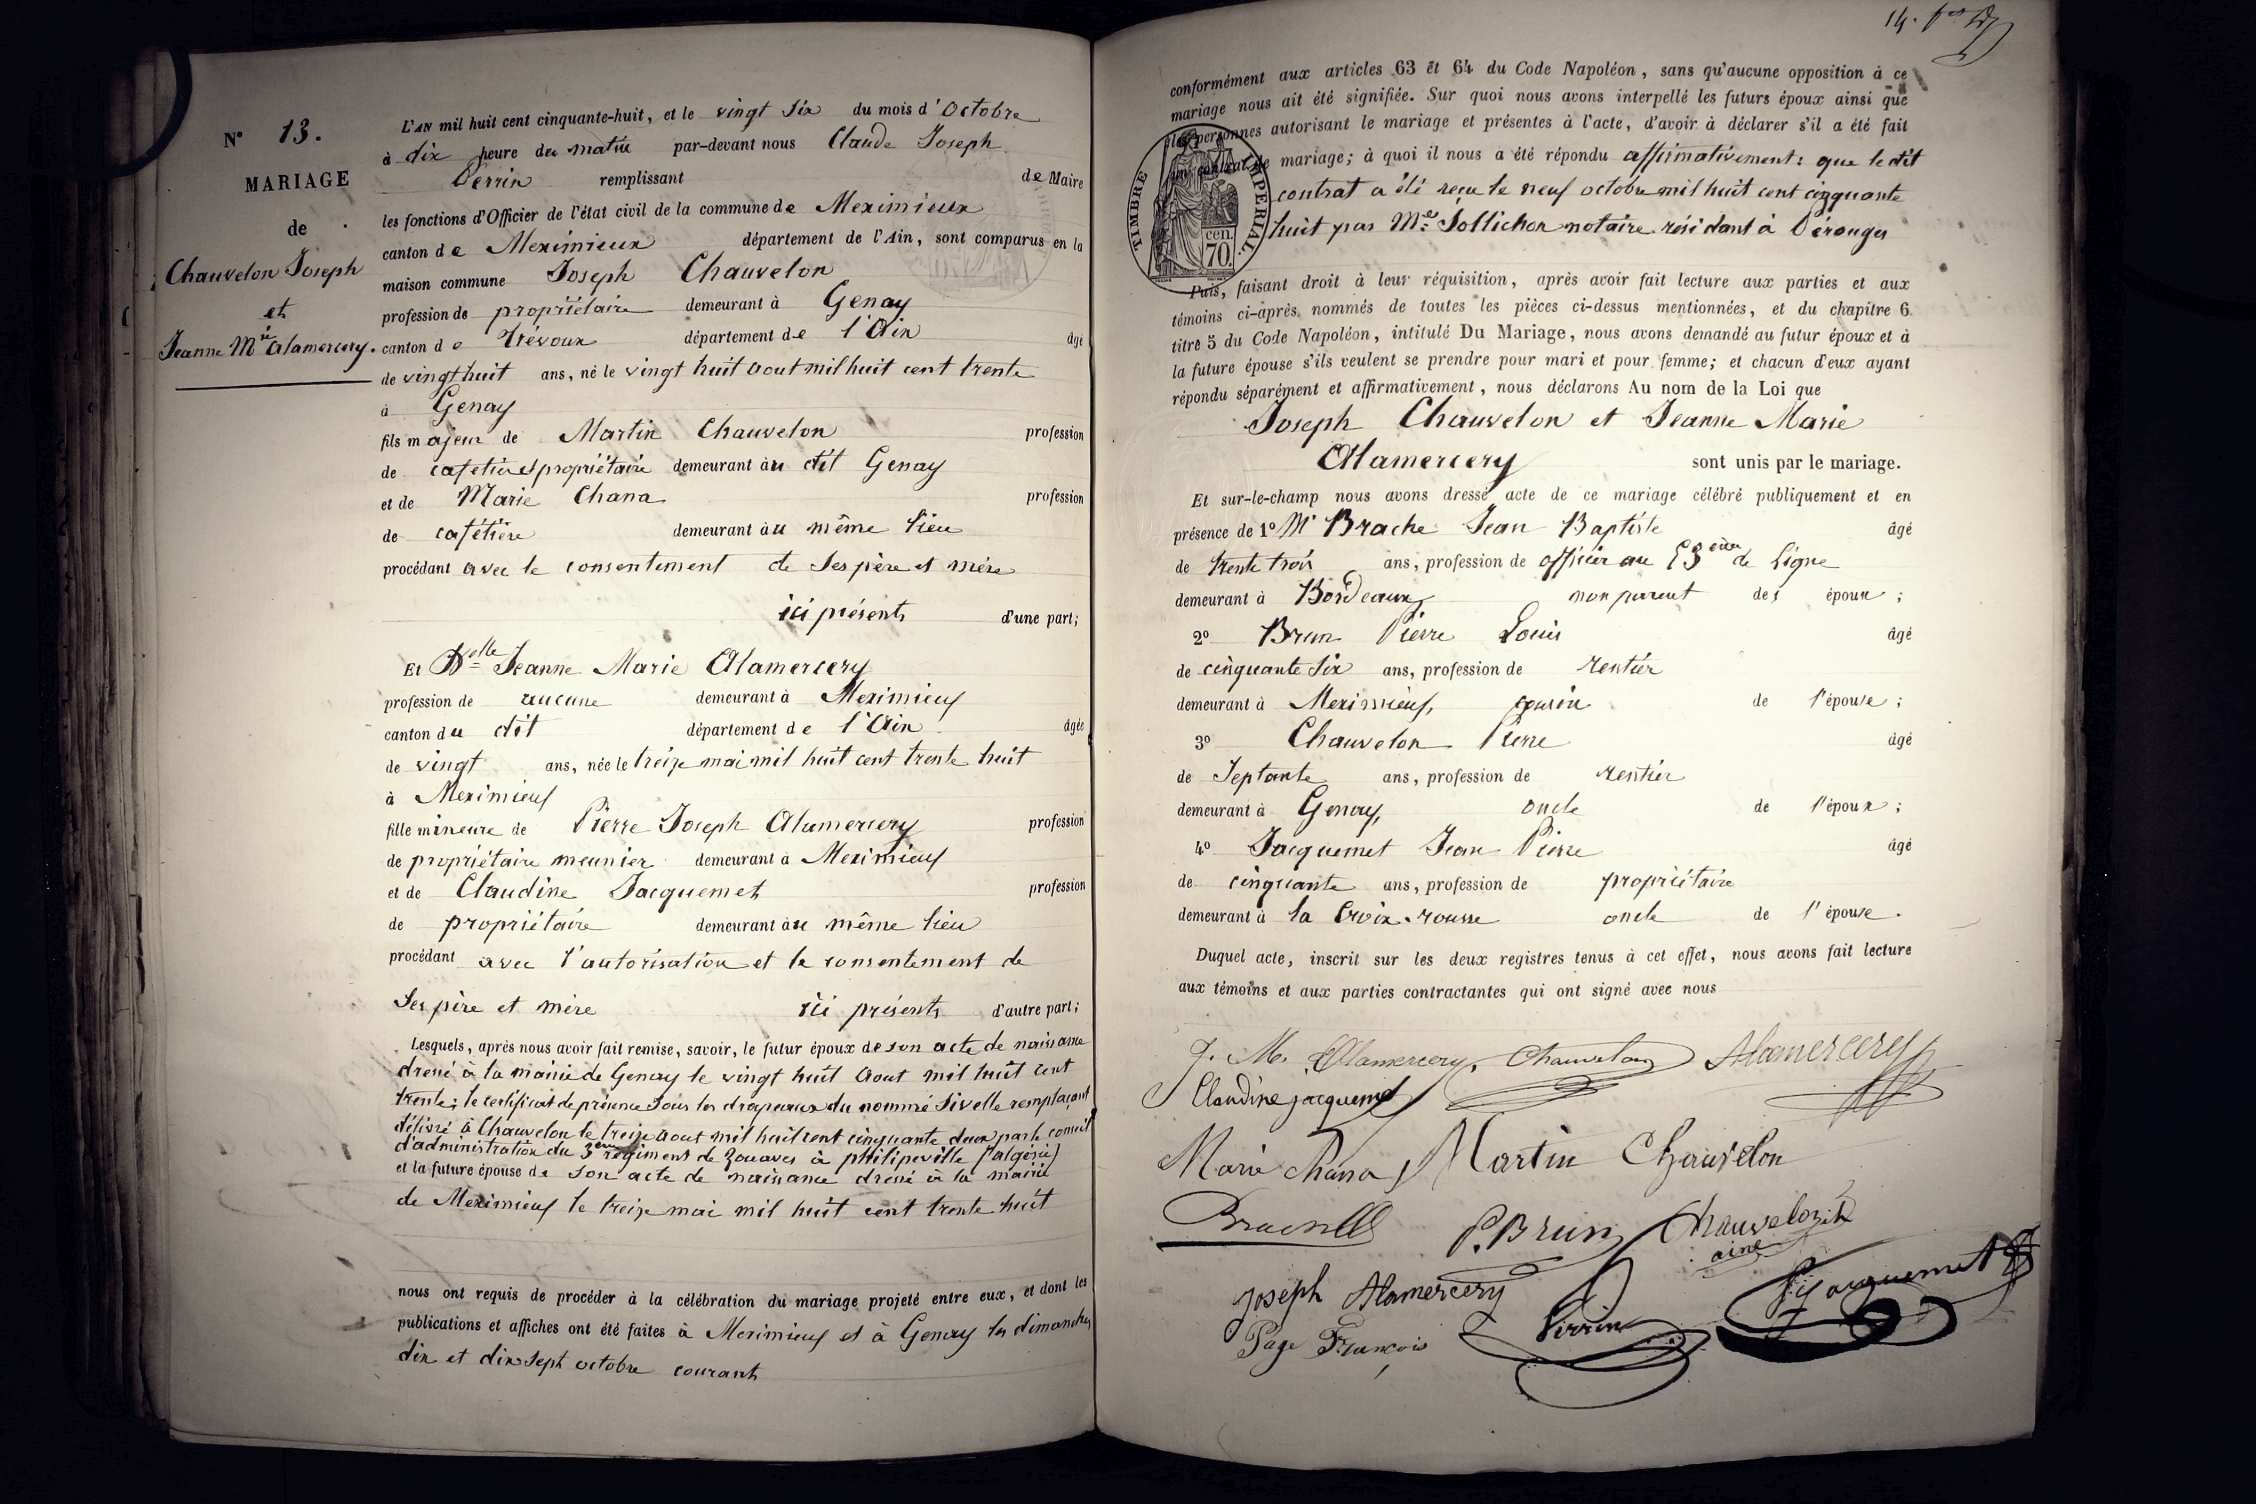 N° 13.
MARIAGE
de
Chauvelon Joseph
et
Jeanne Mie Alamercery.
L'AN mil huit cent cinquante-huit, et le vingt six du mois d'Octobre
à dix heure du matin par-devant nous Claude Joseph
Perrin remplissant de Maire
les fonctions d'Officier de l'état civil de la commune de Meximieux
canton de Meximieux département de l'Ain, sont comparus en la
maison commune Joseph Chauvelon
profession de propriétaire demeurant à Genay
canton de Trévoux département de l'Ain âgé
de vingt huit ans, né le vingt huit aout mil huit cent trente
à Genay
fils majeur de Martin Chauvelon profession
de cafetier et propriétaire demeurant au dit Genay
et de Marie Chana profession
de cafétière demeurant au même lieu
procédant avec le consentement de ses père et mère
ici présents d'une part;
Et Delle Jeanne Marie Alamercery
profession de aucune demeurant à Meximieux
canton du dit département de l'Ain âgée
de vingt ans, née le treize mai mil huit cent trente huit
à Meximieux
fille mineure de Pierre Joseph Alamercery profession
de propriétaire meunier demeurant à Meximieux
et de Claudine Jacquemet profession
de propriétaire demeurant au même lieu
procédant avec l'autorisation et le consentement de
ses père et mère ici présents d'autre part;
Lesquels, après nous avoir fait remise, savoir, le futur époux de son acte de naissance
dressé à la mairie de Genay le vingt huit aout mil huit cent
trente; le certificat de présence sous les drapeaux du nommé Sivelle remplaçant
délivré à Chauvelon le treize aout mil huit cent cinquante deux par le conseil
d'administration du 3eme régiment de Zouaves à philipeville (algérie)
et la future épouse de son acte de naissance dressé à la mairie
de Meximieux le treize mai mil huit cent trente huit
nous ont requis de procéder à la célébration du mariage projeté entre eux, et dont les
publications et affiches ont été faites à Meximieux et à Genay les dimanches
dix et dix sept octobre courant
14.
conformément aux articles 63 et 64 du Code Napoléon, sans qu'aucune opposition à ce
mariage nous ait été signifiée. Sur quoi nous avons interpellé les futurs époux ainsi que
les personnes autorisant le mariage et présentes à l'acte, d'avoir à déclarer s'il a été fait
un contrat de mariage; à quoi il nous a été répondu affirmativement: que le dit
contrat a été reçu le neuf octobre mil huit cent cinquante
huit par Me Jollichon notaire résidant à Pérouges
TIMBRE IMPERIAL.
cen.
70.
Puis, faisant droit à leur réquisition, après avoir fait lecture aux parties et aux
témoins ci-après nommés de toutes les pièces ci-dessus mentionnées, et du chapitre 6
titre 5 du Code Napoléon, intitulé Du Mariage, nous avons demandé au futur époux et à
la future épouse s'ils veulent se prendre pour mari et pour femme; et chacun d'eux ayant
répondu séparément et affirmativement, nous déclarons Au nom de la Loi que
Joseph Chauvelon et Jeanne Marie
Alamercery sont unis par le mariage.
Et sur-le-champ nous avons dressé acte de ce mariage célébré publiquement et en
présence de 1° Mr Brache Jean Baptiste âgé
de trente trois ans, profession de officier au de Ligne
demeurant à Bordeaux, non parent des époux;
2° Brun Pierre Louis âgé
de cinquante six ans, profession de rentier
demeurant à Meximieux, cousin de l'épouse;
3° Chauvelon Pierre âgé
de septante ans, profession de rentier
demeurant à Genay, oncle de l'époux;
4° Jacquemet Jean Pierre âgé
de cinquante ans, profession de propriétaire
demeurant à la Croix-rousse oncle de l'épouse.
Duquel acte, inscrit sur les deux registres tenus à cet effet, nous avons fait lecture
aux témoins et aux parties contractantes qui ont signé avec nous
J. M. Alamercery. Chauvelon Alamercery
Claudine jacquemet
Marie Chana Martin Chauvelon
P. Brun Chauvelon
ainé
joseph Alamercery Perrin Jacquemet
Page François